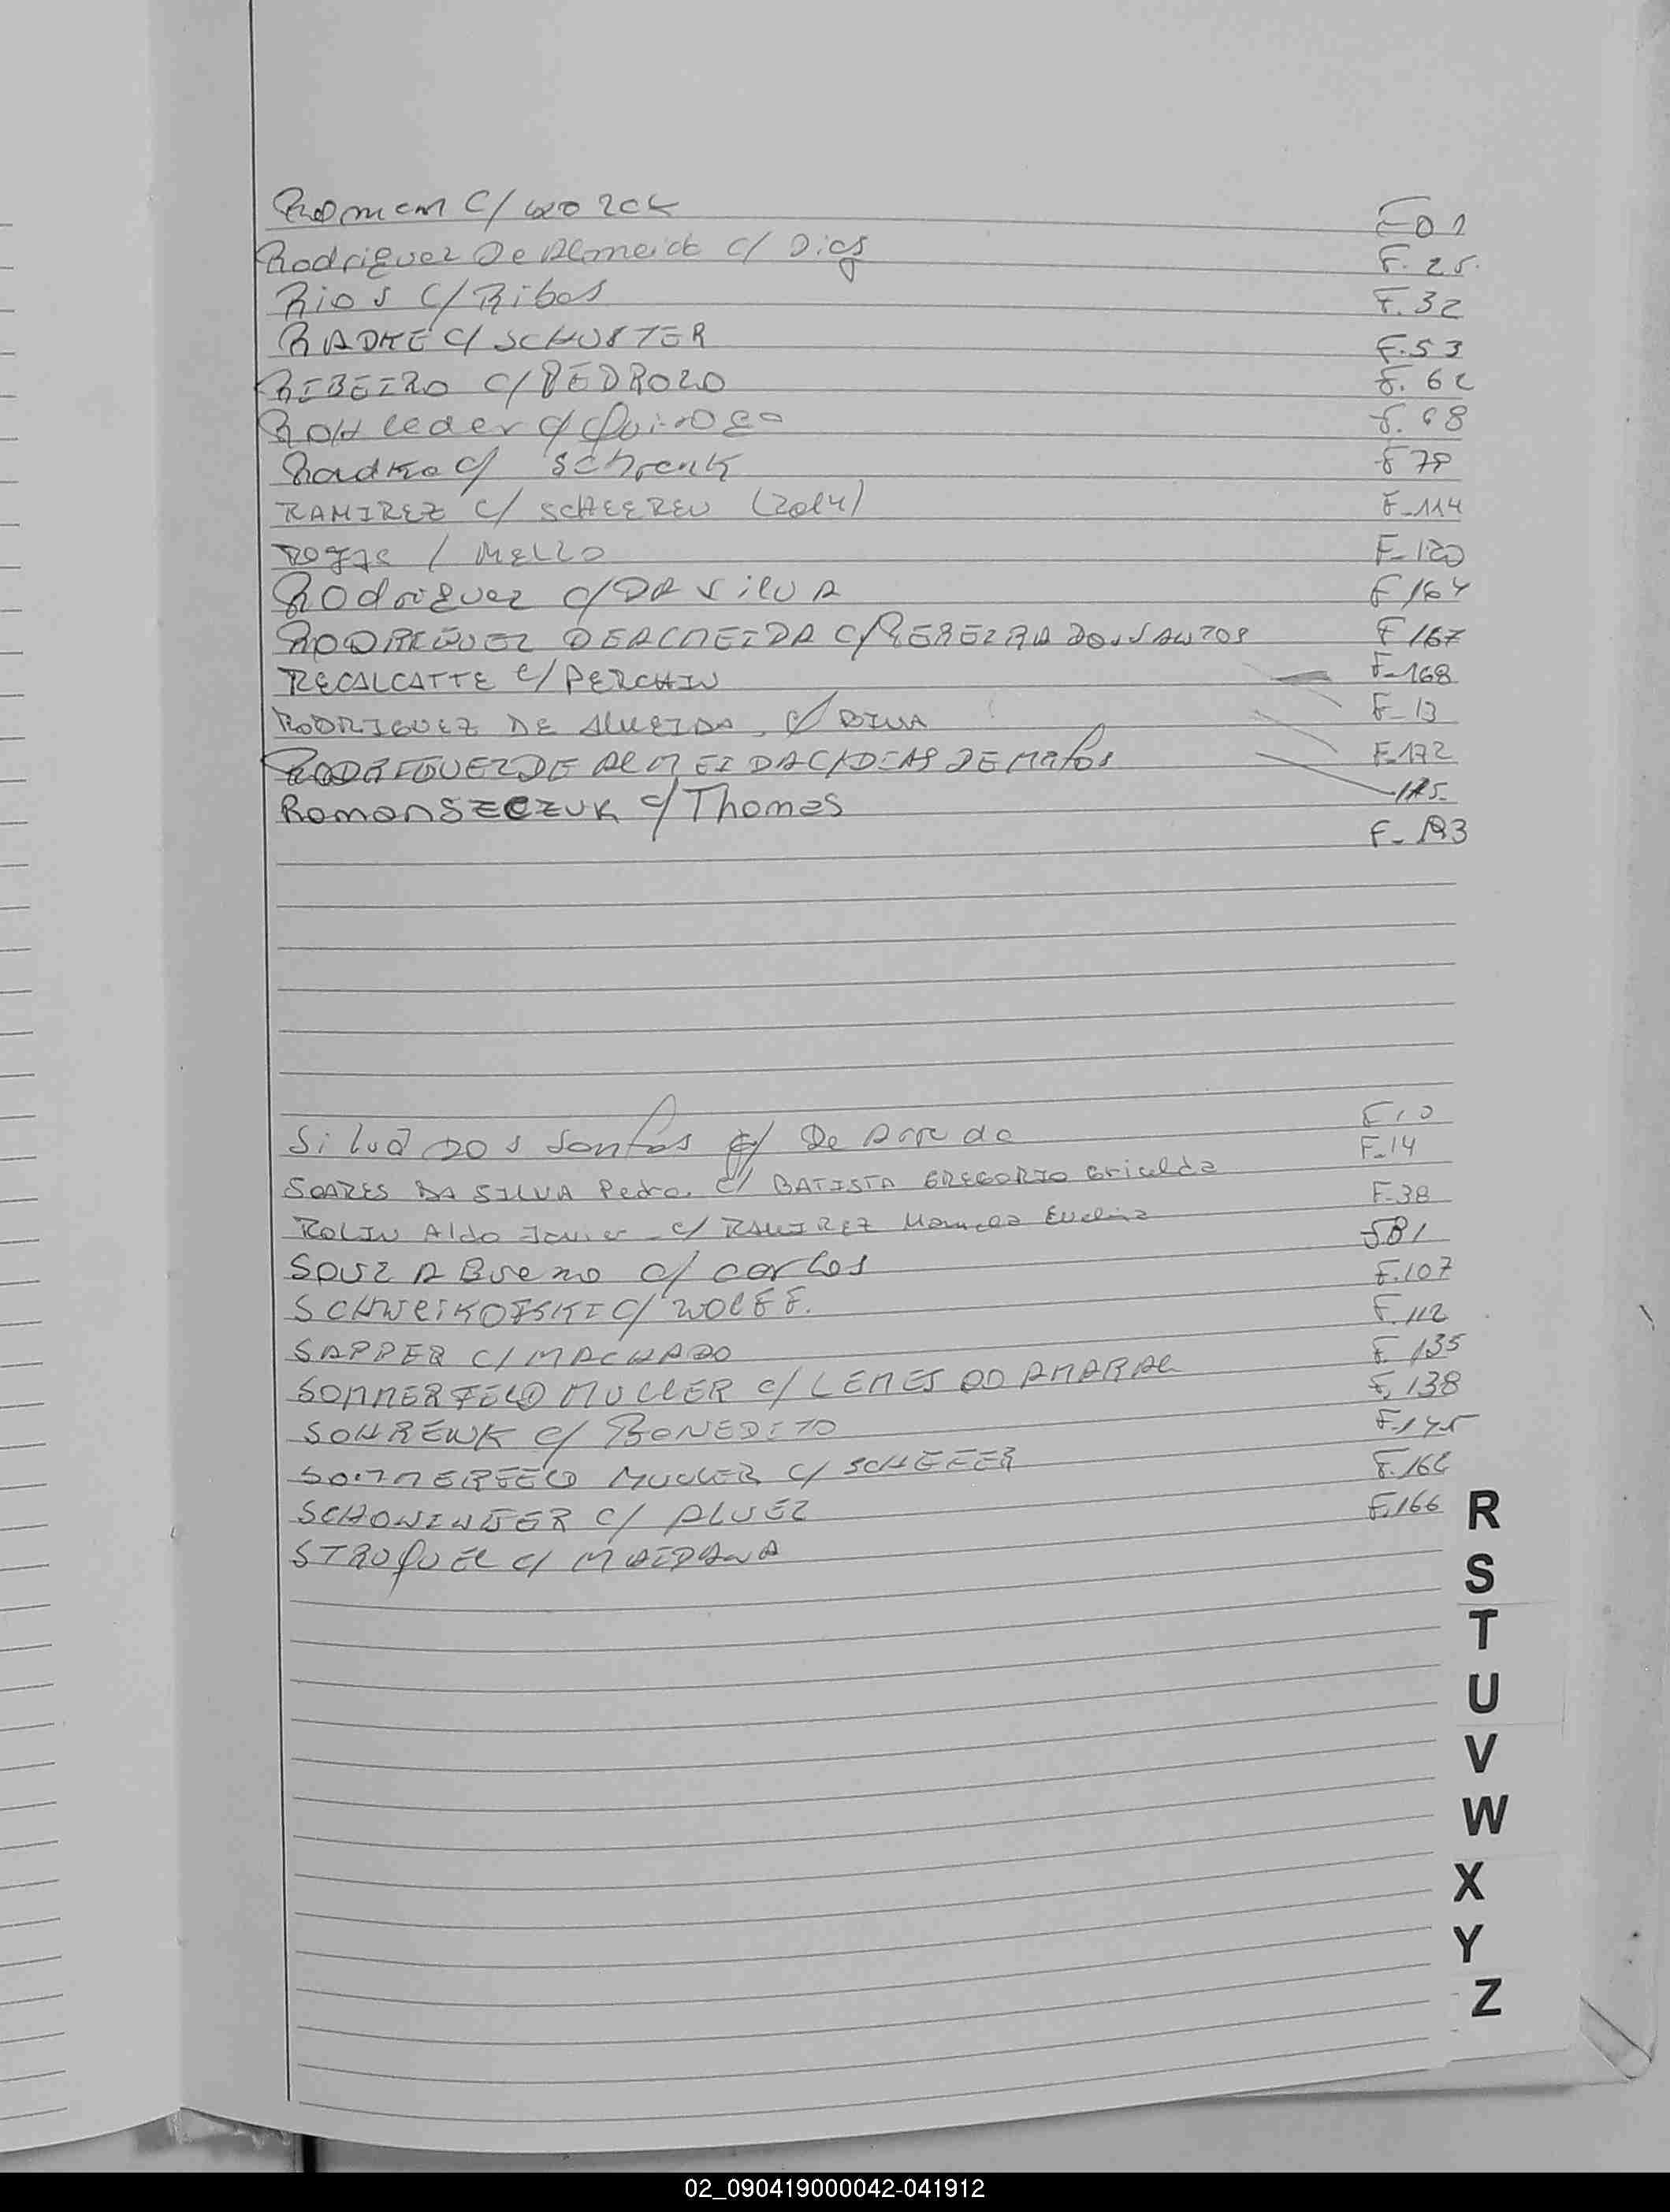 Romem C/ worck F01
Rodriguez De Almeida C/ Dias F. 25.
Rios C/ Ribas F. 32
RADKE C/ SCHUSTER F. 53
RIBEIRO C/ PEDROZO F. 62
ROHleder C/ Quiroga F. 68
Radke C/ Schrenk F 79
RAMIREZ C/ SCHEEREN (2014) F-114
ROJAS / MELLO F-120
ROdriguez C/ DA SilVA F 164
RODRIGUEZ DE ALMEIDA C/ PEREIRA DOS SANTOS F 167
RECALCATTE C/ PERCHIN F-168
RODRIGUEZ DE ALMEIDA, C/ F-13
RODRIGUEZ DE ALMEIDA C/ DIAS DE MATOS F-172
RomanSZCZUK C/ Thomas 175
F- 193
Silva DOS Santos C/ De Arruda F10
SOARES DA SILVA Pedro. C/ BATISTA GREGORIO Griselda F-14
ROLIN Aldo Javier - C/ RAMIREZ Evelina F-38
SOUZA Bueno C/ carlos F81
C/ WOLFF. F. 107
SAPPER C/ MACHADO F. 112
SOMMERFELD MULLER C/ LEMES DO AMARAL F 135
SCHRENK C/ BENEDITO F. 138
SOMMERFELD MULLER C/ SCHEFER F. 145
C/ ALVEZ F. 166
STROQUEL C/ MAIDANA F. 166
R
S
T
U
V
W
X
Y
Z
02_090419000042-041912